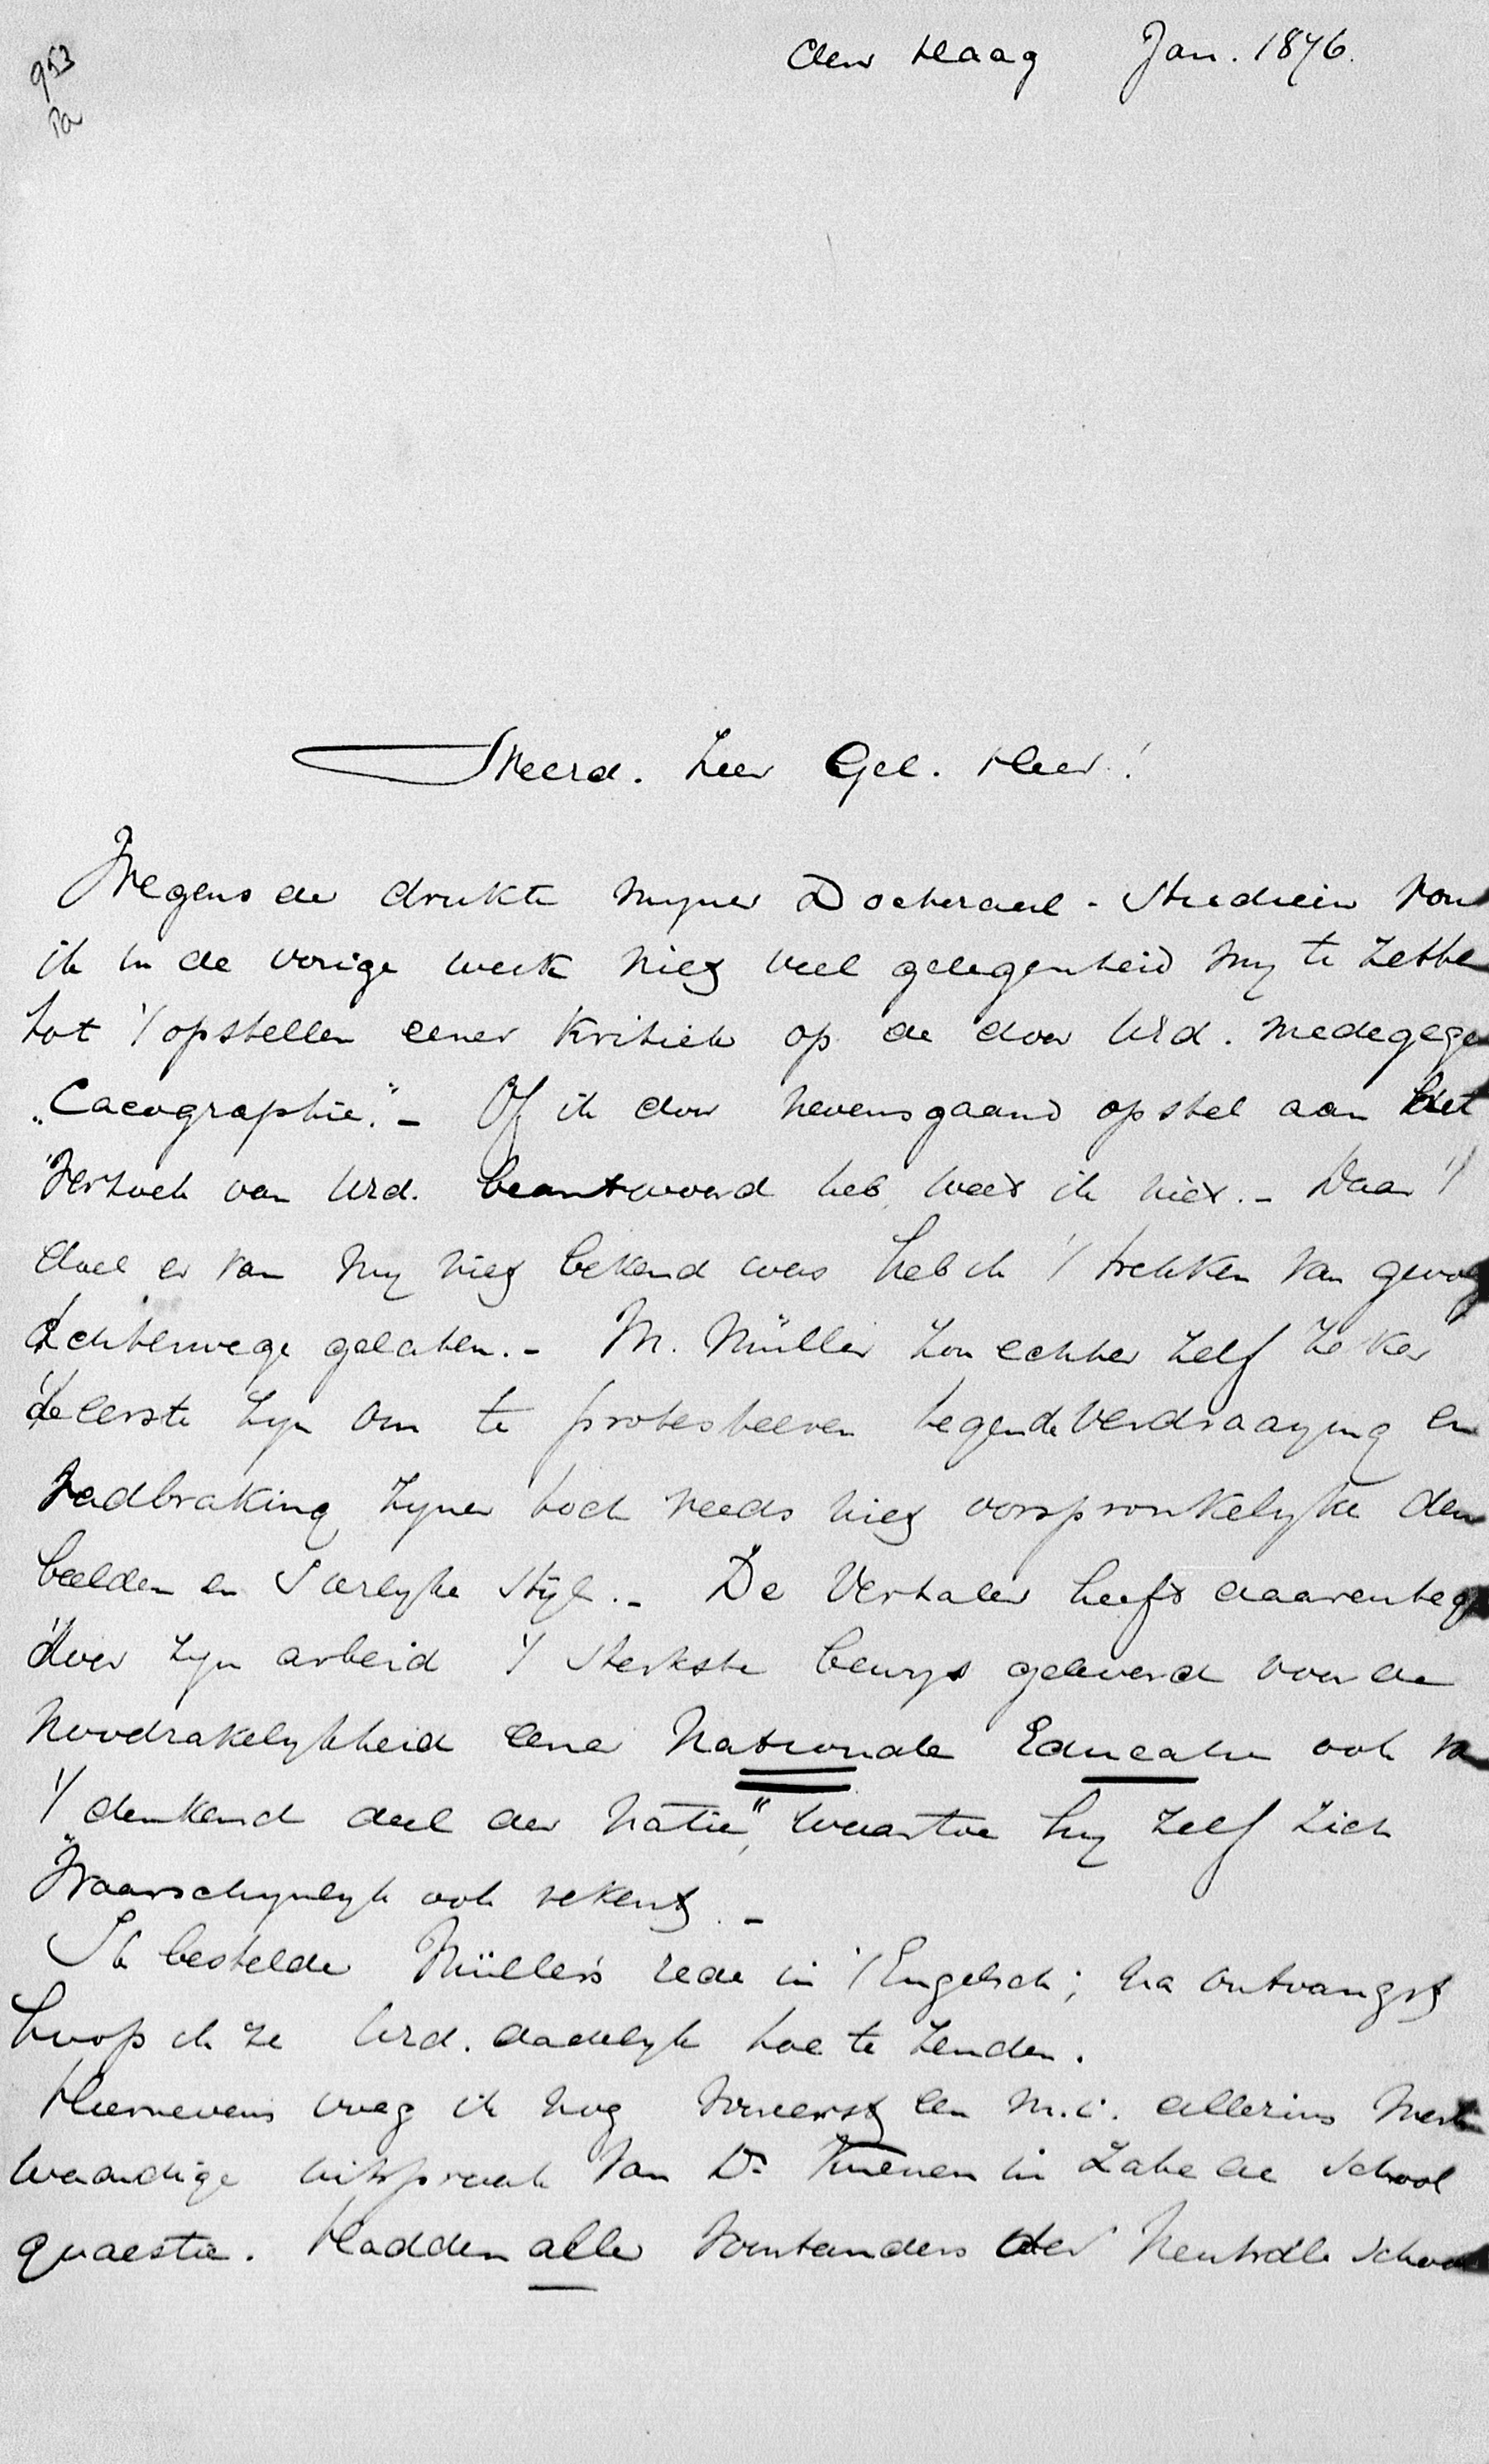 953
Pa
den Haag Jan. 1876.
Weerd. Zeer Gel. Heer!
Wegens de drukte mijner Doctoraal-Studieën vond
ik in de vorige week niet veel gelegenheid mij te zetten
tot 't opstellen eener Kritiek op de door UEd. medegege
„Cacographie." – Of ik door nevensgaand opstel aan het
Verzoek van UEd. beantwoord heb, weet ik niet. – Daar 't
doel er van mij niet bekend was heb ik 't trekken van gevolg
achterwege gelaten. – M. Müller zou echter zelf zeker
de eerste zijn om te protesteeren tegen de verdraaying en
radbraking zijner toch reeds niet oorspronkelijke den
beelden en sierlijke stijl. – De Vertaler heeft daarenteg
door zijn arbeid 't sterkste bewijs geleverd voor de
noodzakelijkheid eener Nationale Educatie ook va
't denkend deel der Natie", waartoe hij zelf zich
waarschijnlijk ook rekent. –
Ik bestelde Müller's rede in 't Engelsch; na ontvangst
hoop ik ze UEd. dadelijk toe te zenden.
Hiernevens voeg ik nog vooreerst een m.i. allezins merk
waardige uitspraak van Dr Kuenen in Zake de School
quaestie. Hadden alle Voorstanders der Neutrale School